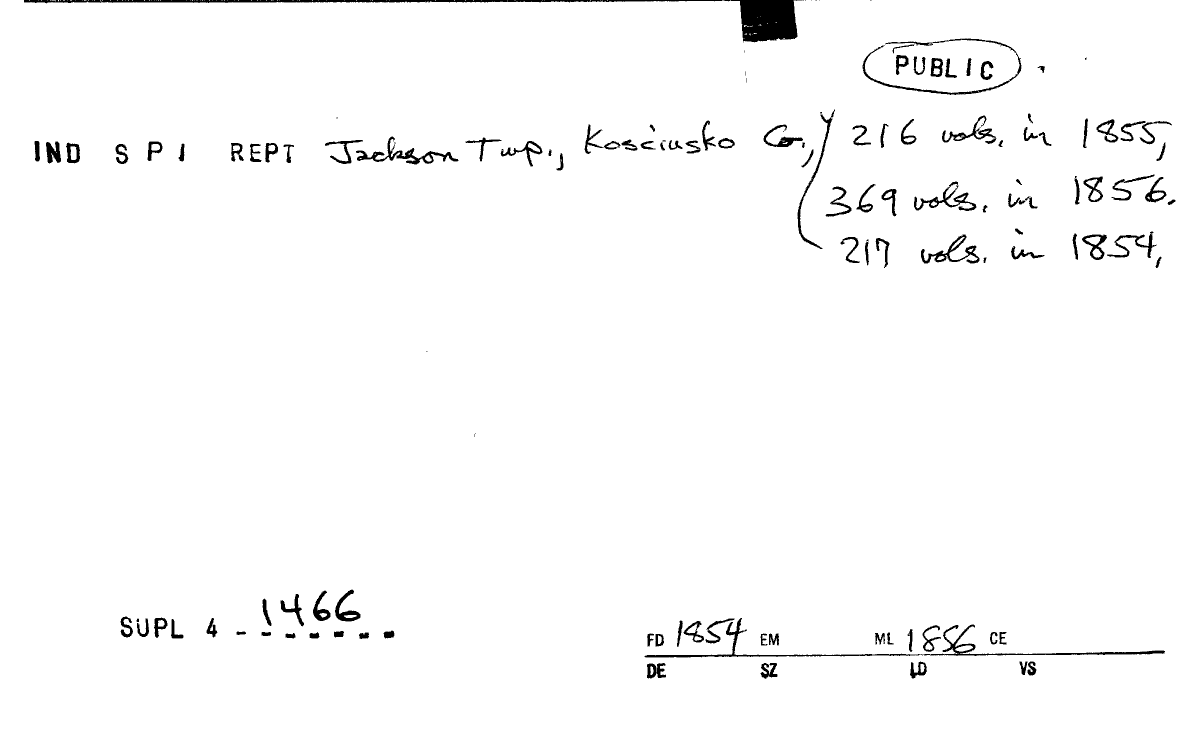 PUBLIC
IND S P I REPT Jackson Twp., Kosciusko Co., 216 vols. in 1855,
369 vols. in 1856.
217 vols. in 1854,
SUPL 4 - 1466
FD 1854 EM ML 1856 CE
DE SZ LD VS